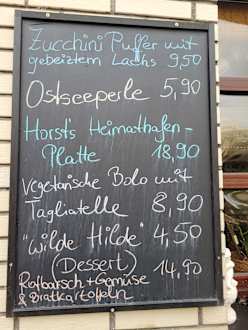 Zucchini Puffer mit
gebeiztem Lachs 9,50
Ostseeperle 5,90
Horst's Heimathafen-
Platte 18,90
Vegetarische Bolo mit
Tagliatelle 8,90
"wilde Hilde" 4,50
(Dessert)
Rotbarsch + Gemüse 14,90
& Bratkartoffeln